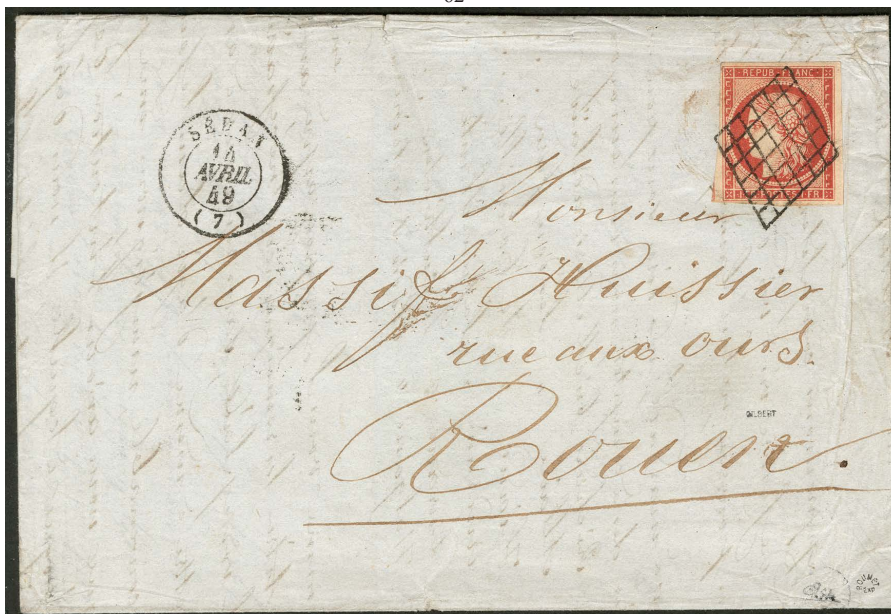 SEDAN
14
AVRIL
49
(7)
REPUB. FRANC
1 FR
Monsieur
Massif Huissier
rue aux ours.
Rouen.
GILBERT
ROUMET
EXP